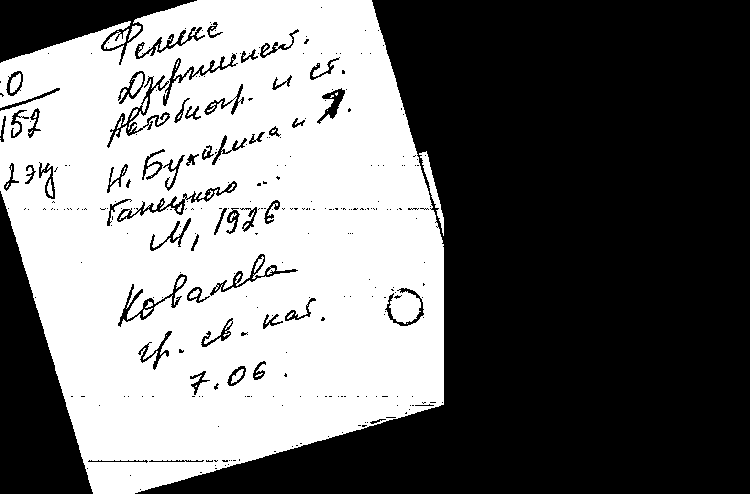 Феликс
Дзержинский.
Автобиогр. и ст.
Н. Бухарина и Я.
Ганецкого ...
М, 1926
Ковалева
гр. св. кат.
7.06.
0
152
2 экз